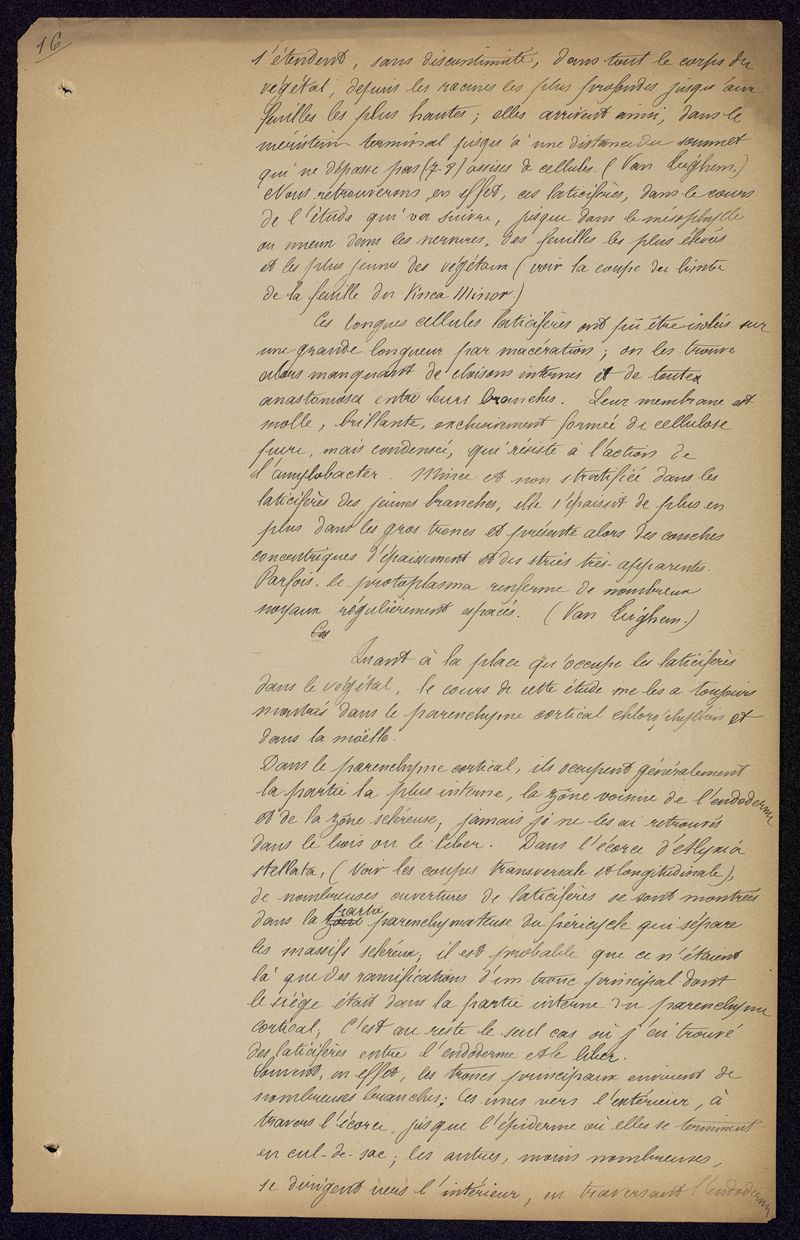 16
s'étendent, sans discontinuité, dans tout le corps du
végétal, depuis les racines les plus profondes jusqu'aux
feuilles les plus hautes; elles arrivent ainsi, dans le
méristem terminal jusqu'à une distance du sommet
qui ne dépasse pas (7-8) assises de cellules. (Van Tieghem.)
Nous retrouverons, en effet, ces laticifères, dans le cours
de l'étude qui va suivre, jusque dans le mésophylle
ou mieux dans les nervures, des feuilles les plus élevées
et les plus jeunes des végétaux (voir la coupe du limbe
de la feuille du Vinca Minor.)
Ces longues cellules laticifères ont pû être isolées sur
une grande longueur par macération; on les trouve
alors manquant de cloisons internes et de toutes
anastomoses entre leurs branches. Leur membrane est
molle, brillante, exclusivement formée de cellulose
pure, mais condensée, qui résiste à l'action de
l'amylobacter. Mince et non stratifiée dans les
laticifères des jeunes branches, elle s'épaissit de plus en
plus dans les gros troncs et présente alors des couches
concentriques d'épaississement et des stries très-apparentes.
Parfois, le protoplasma renferme de nombreux
noyaux régulièrement espacés. (Van Tieghem.)
Ces
Quant à la place qu'occupe les laticifères
dans le végétal, le cours de cette étude me les a toujours
montrés dans le parenchyme cortical chlorophyllien et
dans la moëlle.
Dans le parenchyme cortical, ils occupent généralement
la partie la plus interne, la zône voisine de l'endoderme
et de la zône scléreuse, jamais je ne les ai retrouvés
dans le bois ou le liber. Dans l'écorce d'Alyxia
stellata, (Voir les coupes transversale et longitudinale),
de nombreuses ouvertures de laticifères se sont montrées
dans la zone partie parenchymateuse du péricycle qui sépare
les massifs scléreux; il est probable que ce n'étaient
là que des ramifications d'un tronc principal dont
le siège était dans la partie interne du parenchyme
cortical; C'est au reste le seul cas où j'ai trouvé
des laticifères entre l'endoderme et le liber.
Souvent, en effet, les troncs principaux envoient de
nombreuses branches; les unes vers l'extérieur, à
travers l'écorce, jusque l'épiderme où elles se terminent
en cul-de-sac; les autres, moins nombreuses,
se dirigent vers l'intérieur, en traversant l'endoderme